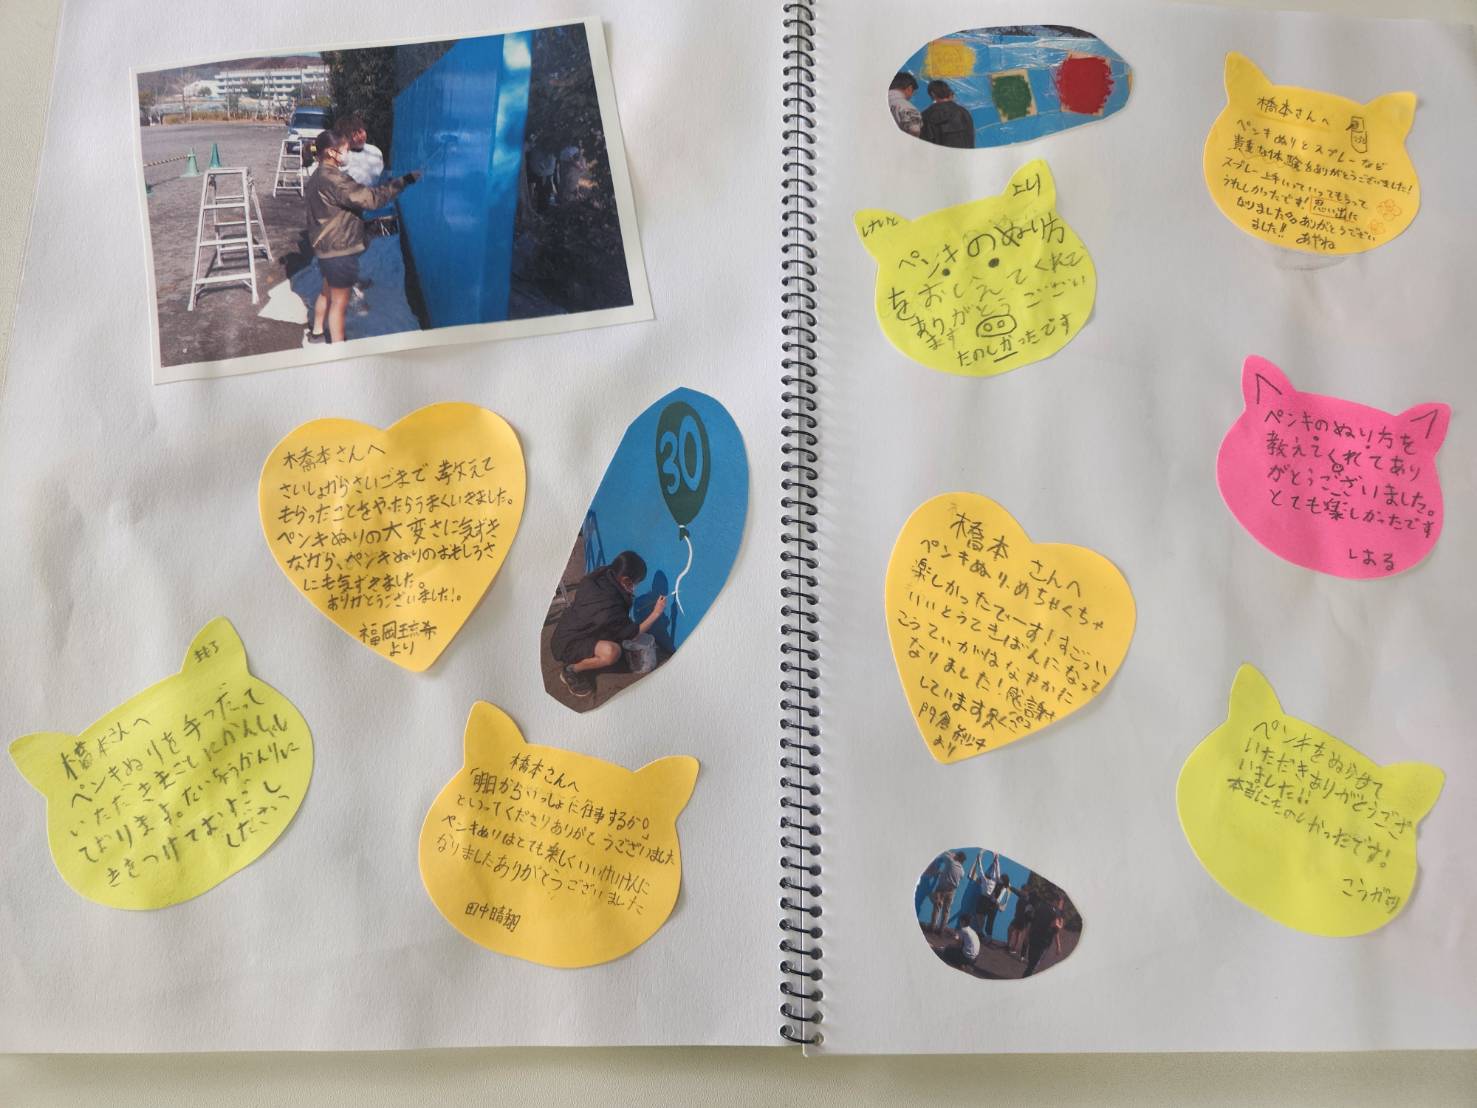 橋本さんへ
さいしょからさいごまで教えて
もらったことをやったらうまくいきました。
ペンキぬりの大変さに気ずき
ながら、ペンキぬりのおもしろさ
にも気ずきました。
ありがとうございました!。
福岡
より
30
橋本さんへ
ペンキぬりを手つだって
いただきまことにかんしゃし
ております。たいちょうかんりに
きをつけておすごし
ください
橋本さんへ
「明日からいっしょに仕事するか。」
といってくださりありがとうございました
ペンキぬりはとても楽しくいいけいけんに
なりましたありがとうございました
田中晴翔
橋本さんへ
ペンキぬりとスプレーなど
貴重な体験をありがとうございました!
スプレー上手いっていってもらって
うれしかったです!思い出に
なりました。ありがとうござい
ました!! あやね
けいと
より
ペンキのぬり方
をおしえてくれて
ありがとうござい
ます
たのしかったです
ペンキのぬり方を
教えてくれてあり
がとうございました。
とても楽しかったです
しはる
橋本 さんへ
ペンキぬりめちゃくちゃ
楽しかったでーす!すごっい
いいとうてきばんになって
こうていがはなやかに
なりました!感謝
しています
より
ペンキをぬらせて
いただきありがとうござ
いました!!
本当にたのしかったです!
こうがより